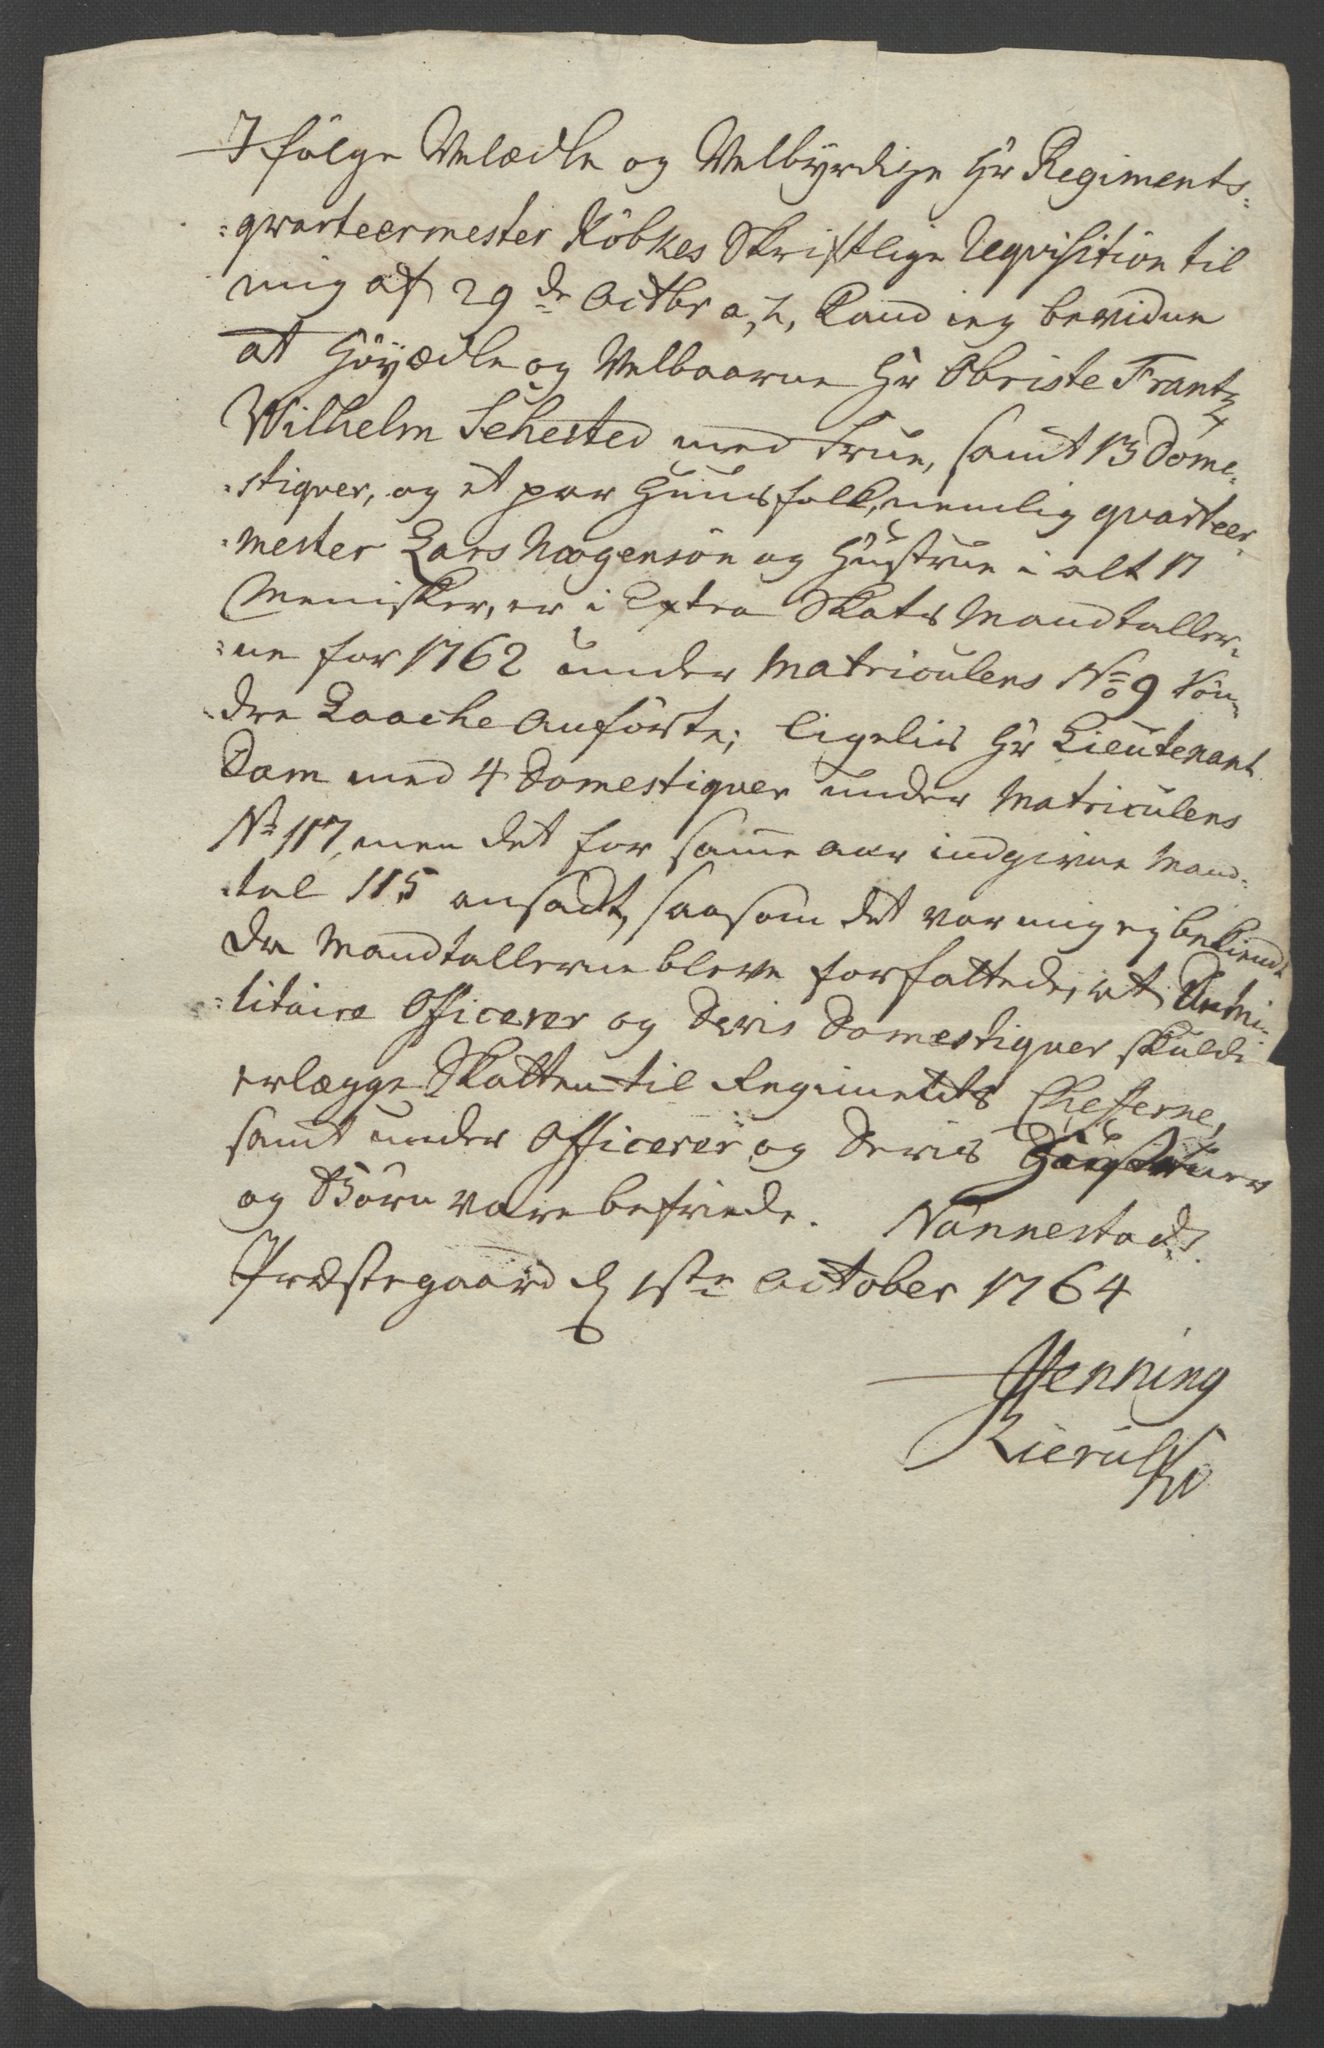 I følge Velædle og Velbyrdige Hr Regiments-
qvarteermester Röbkes Skriftlige Reqvisition til
mig af 29de Octbr a, h, Kand ieg bevidne
at Höyædle og Velbaarne Hr Obriste Frantz
Wilhelm Sehested med Frue, samt 13 Dome-
stiqver, og et par Huusfolk, nemlig qvarteer-
mester Lars Mogensön og Hustrue i alt 17
Menisker, er i Extra Skats Mandtaller-
ne for 1762 under Matriculens No 9 Sön-
dre Laache Anförte; ligeliis Hr Lieutenant
Dam med 4 Domestiqver under Matriculens
No 117, men det for samme aar indgivne Mand-
tal 115 ansadt, saasom det var mig ej bekiendt
da Mandtallerne bleve forfattede, at Mi-
litaire Officerer og Deris Domestiqver skulde
erlægge Skatten til Regiments Chefferne,
samt under Officerer og Deris Hustruer
og Börn vare befriede. Nannestads
Præstegaard d 1ste October 1764
Henning
Kierulf